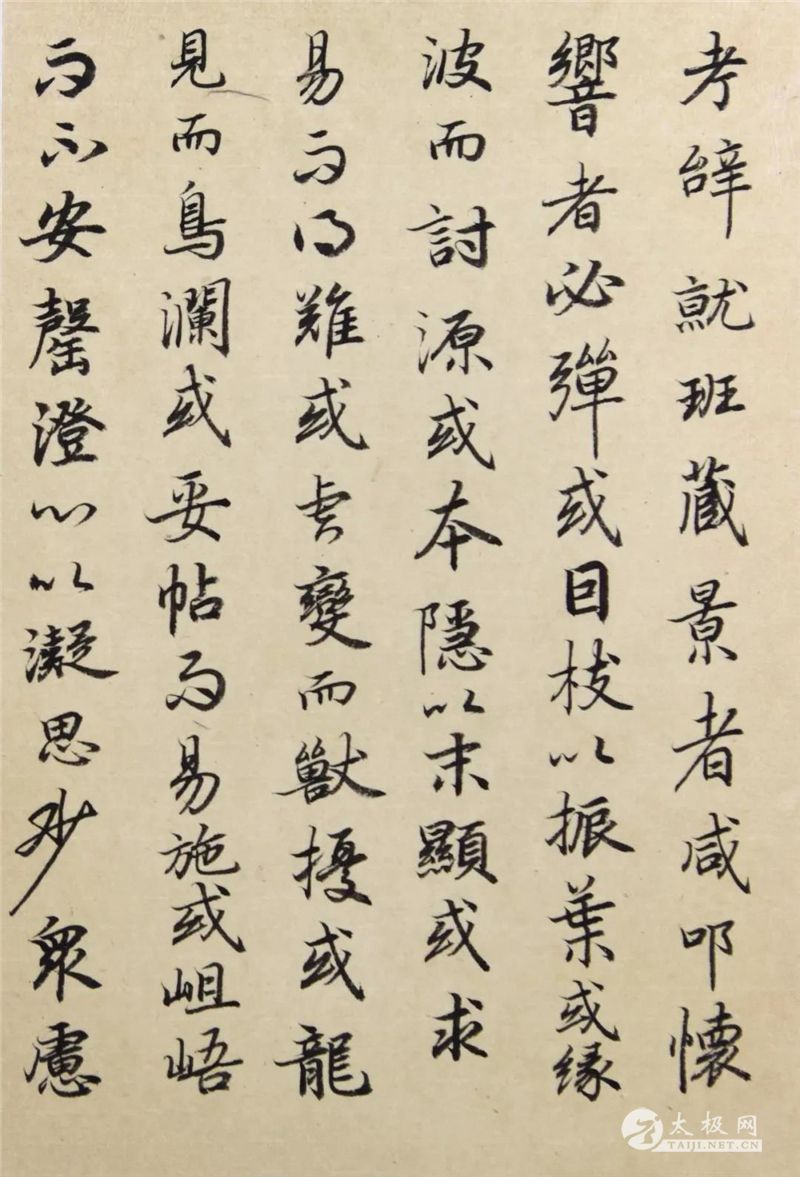 考辞就班藏景者咸叩懷
響者必彈或因枝以振葉或緣
波而討源或本隱以末顯或求
易而得難或虎變而獸擾或龍
見而鳥瀾或妥帖而易施或岨峿
而不安罄澄心以凝思眇衆慮
太极网
TAIJI.NET.CN